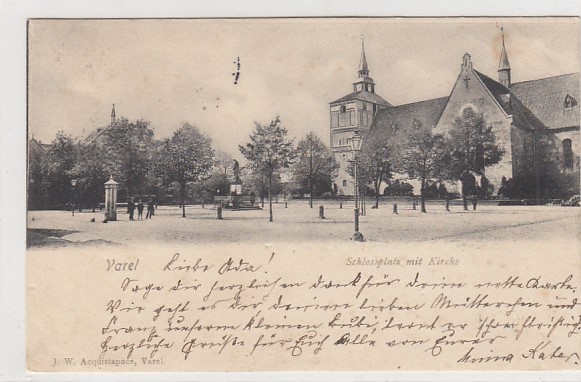 Varel Liebe Ada! Schlossplatz mit Kirche
Sage dir herzlichen Dank für deine nette Karte.
Wie geht es dir deinem lieben Mütterchen und
Franz unserem kleinen lernt er schon fleißig
herzliche Grüße für Euch Alle von Eurer
Anna
J. W. Acquistapace, Varel.